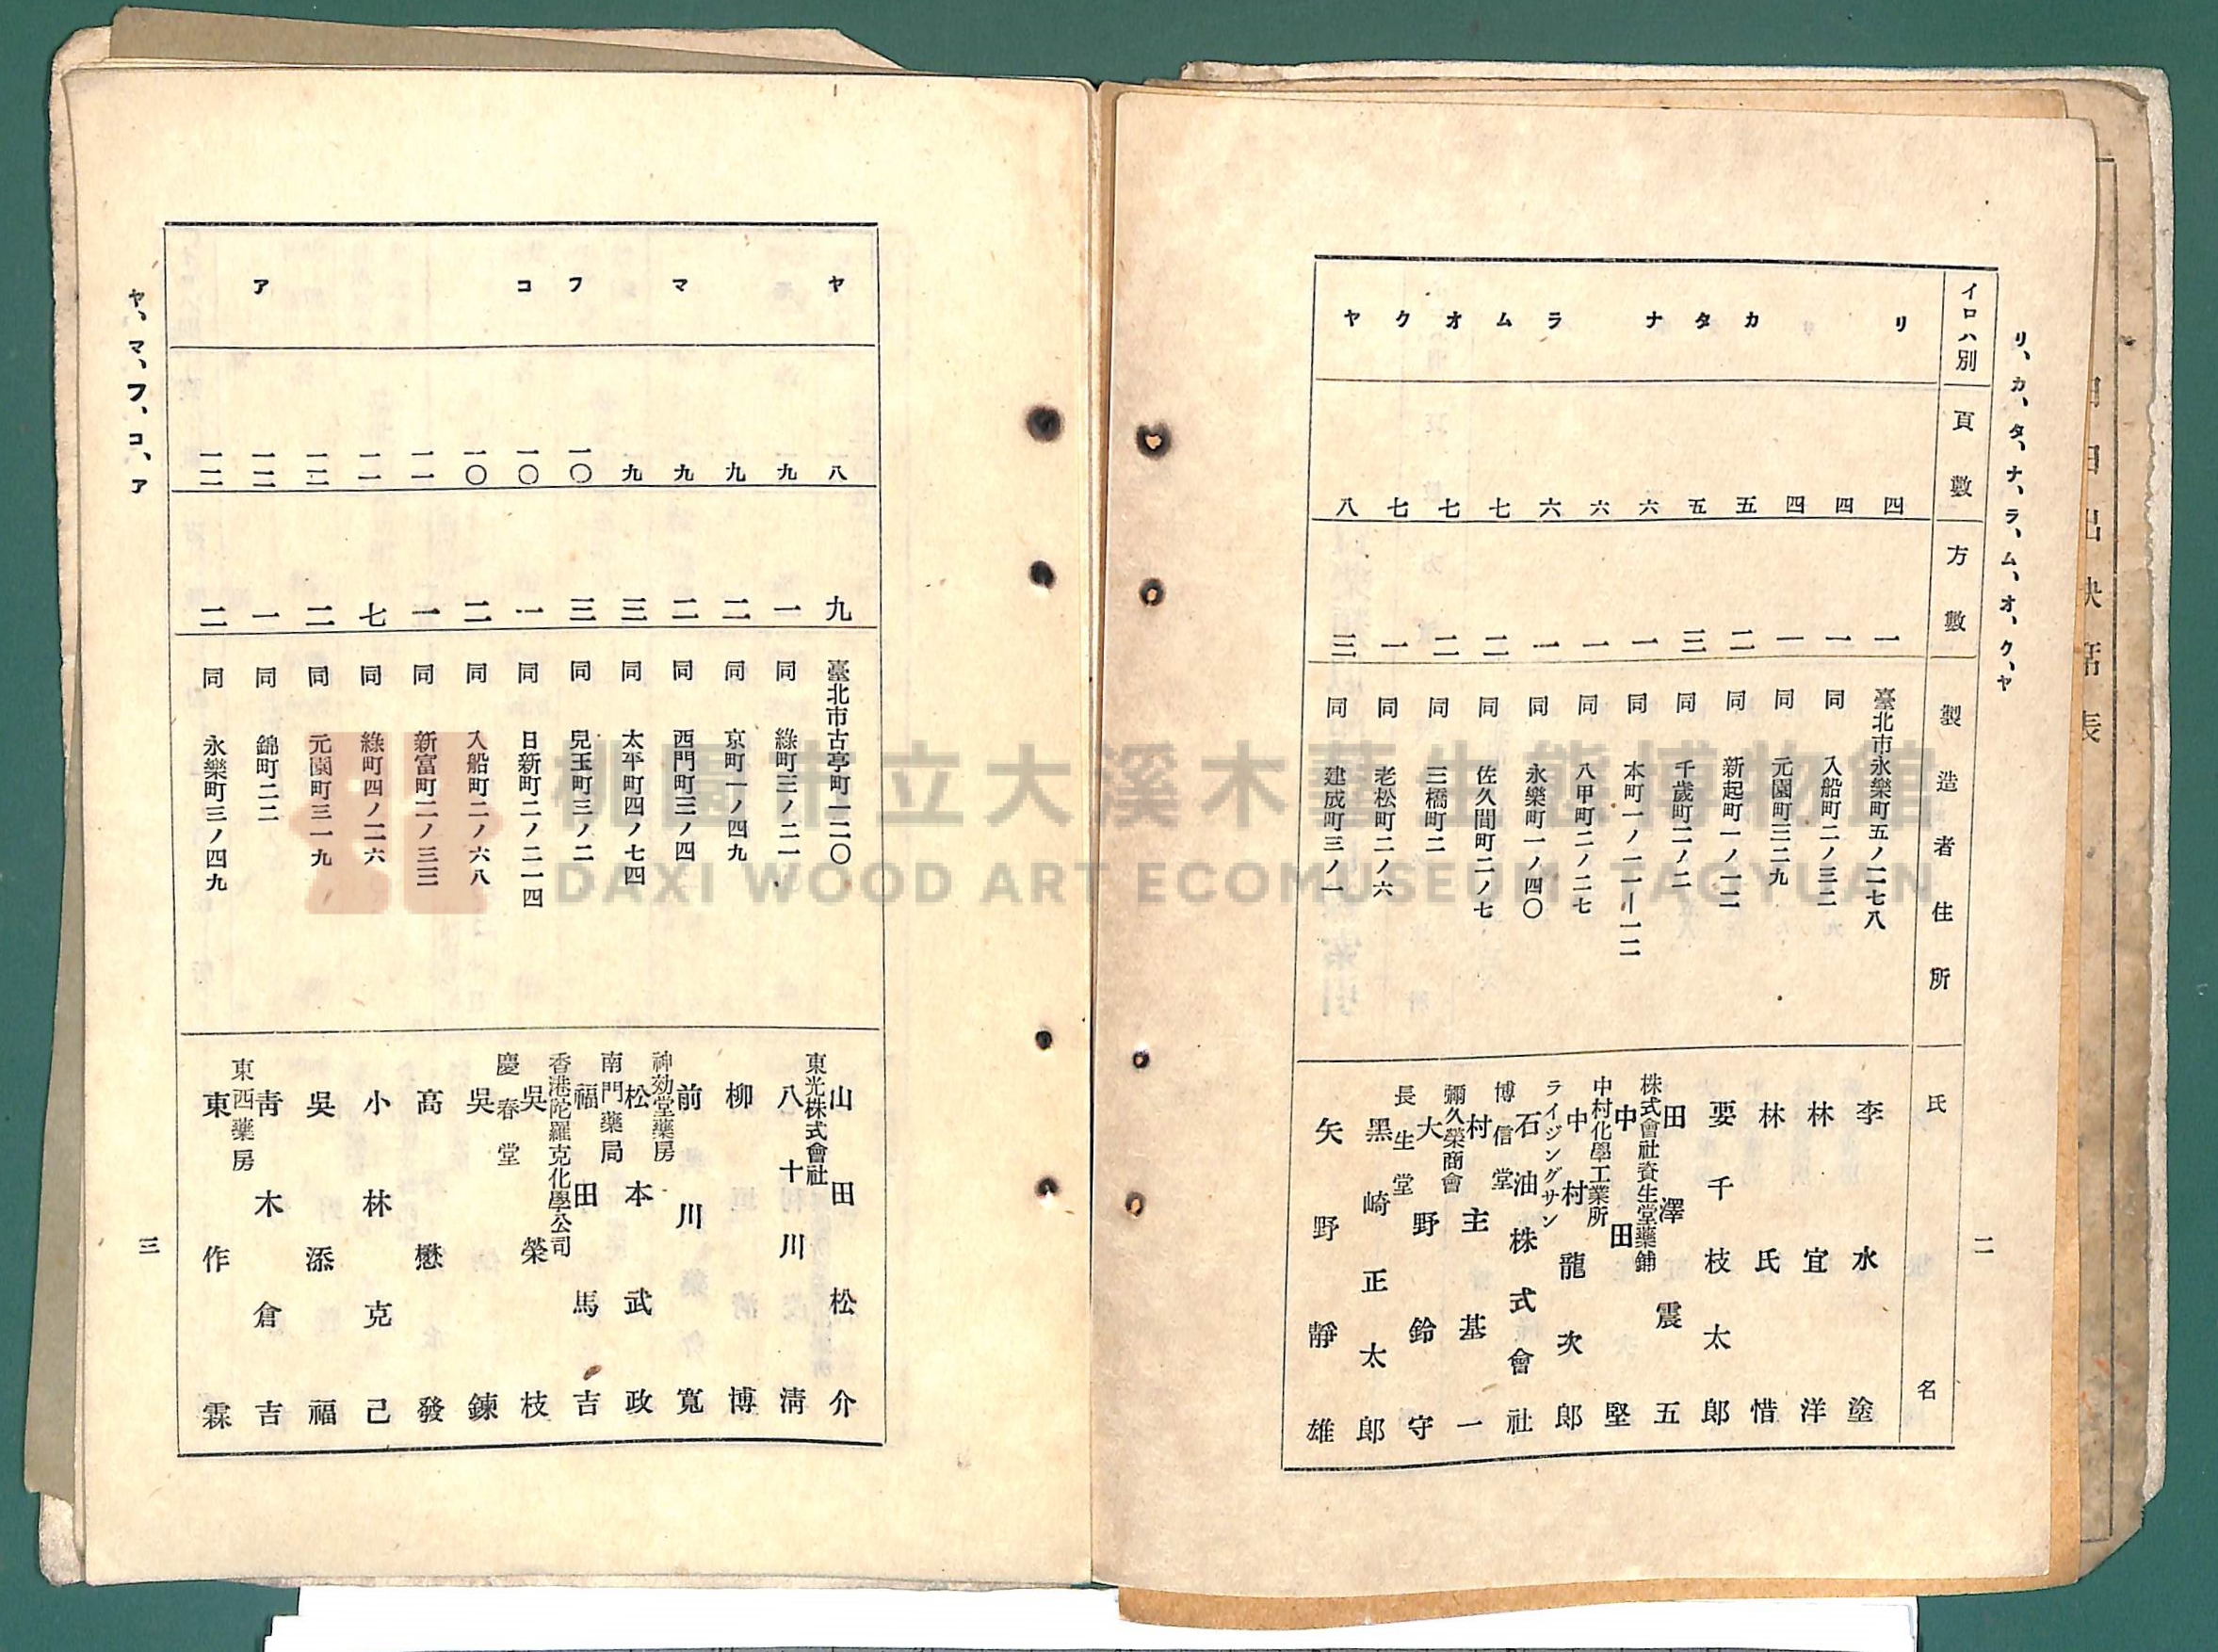 リ、カ、タ、ナ、ラ、ム、オ、ク、ヤ
二
イロハ別 頁數 方數 製造者住所 氏名
リ 四 一 臺北市永樂町五ノ二七八 李水塗
四 一 同 入船町二ノ三二 林宜洋
四 一 同 元園町三二九 林氏惜
カ 五 二 同 新起町一ノ一二 要千枝太郎
タ 五 三 同 千歲町二ノ二 田澤震五
ナ 六 一 同 本町一ノ二一―二二 株式會社資生堂藥鋪 中田堅
六 一 同 八甲町二ノ二七 中村化學工業所 中村龍次郎
ラ 六 一 同 永樂町一ノ四〇 ライジングサン石油株式會社
ム 七 二 同 佐久間町二ノ七 博信堂 村主基一
オ 七 二 同 三橋町二 彌久榮商會 大野鈴守
ク 七 一 同 老松町二ノ六 長生堂 黑崎正太郎
ヤ 八 三 同 建成町三ノ一 矢野靜雄
ヤ 八 九 臺北市古亭町一二〇 山田松介
九 一 同 綠町三ノ二一 東光株式會社 八十川淸
九 二 同 京町一ノ四九 柳博
マ 九 二 同 西門町三ノ四 前川寬
九 三 同 太平町四ノ七四 神効堂藥房 松本武政
フ 一〇 三 同 兒玉町三ノ二 南門藥局 福田馬吉
コ 一〇 一 同 日新町二ノ二一四 香港陀羅克化學公司 吳榮枝
一〇 二 同 入船町二ノ六八 慶春堂 吳鍊
一一 一 同 新富町二ノ三三 高懋發
一一 七 同 綠町四ノ二六 小林克己
一二 二 同 元園町三一九 吳添福
ア 一二 一 同 錦町二二 靑木倉吉
一二 二 同 永樂町三ノ四九 東西藥房 東作霖
ヤ、マ、フ、コ、ア
三
出
席
表
桃園市立大溪木藝生態博物館
DAXI WOOD ART ECOMUSEUM, TAOYUAN